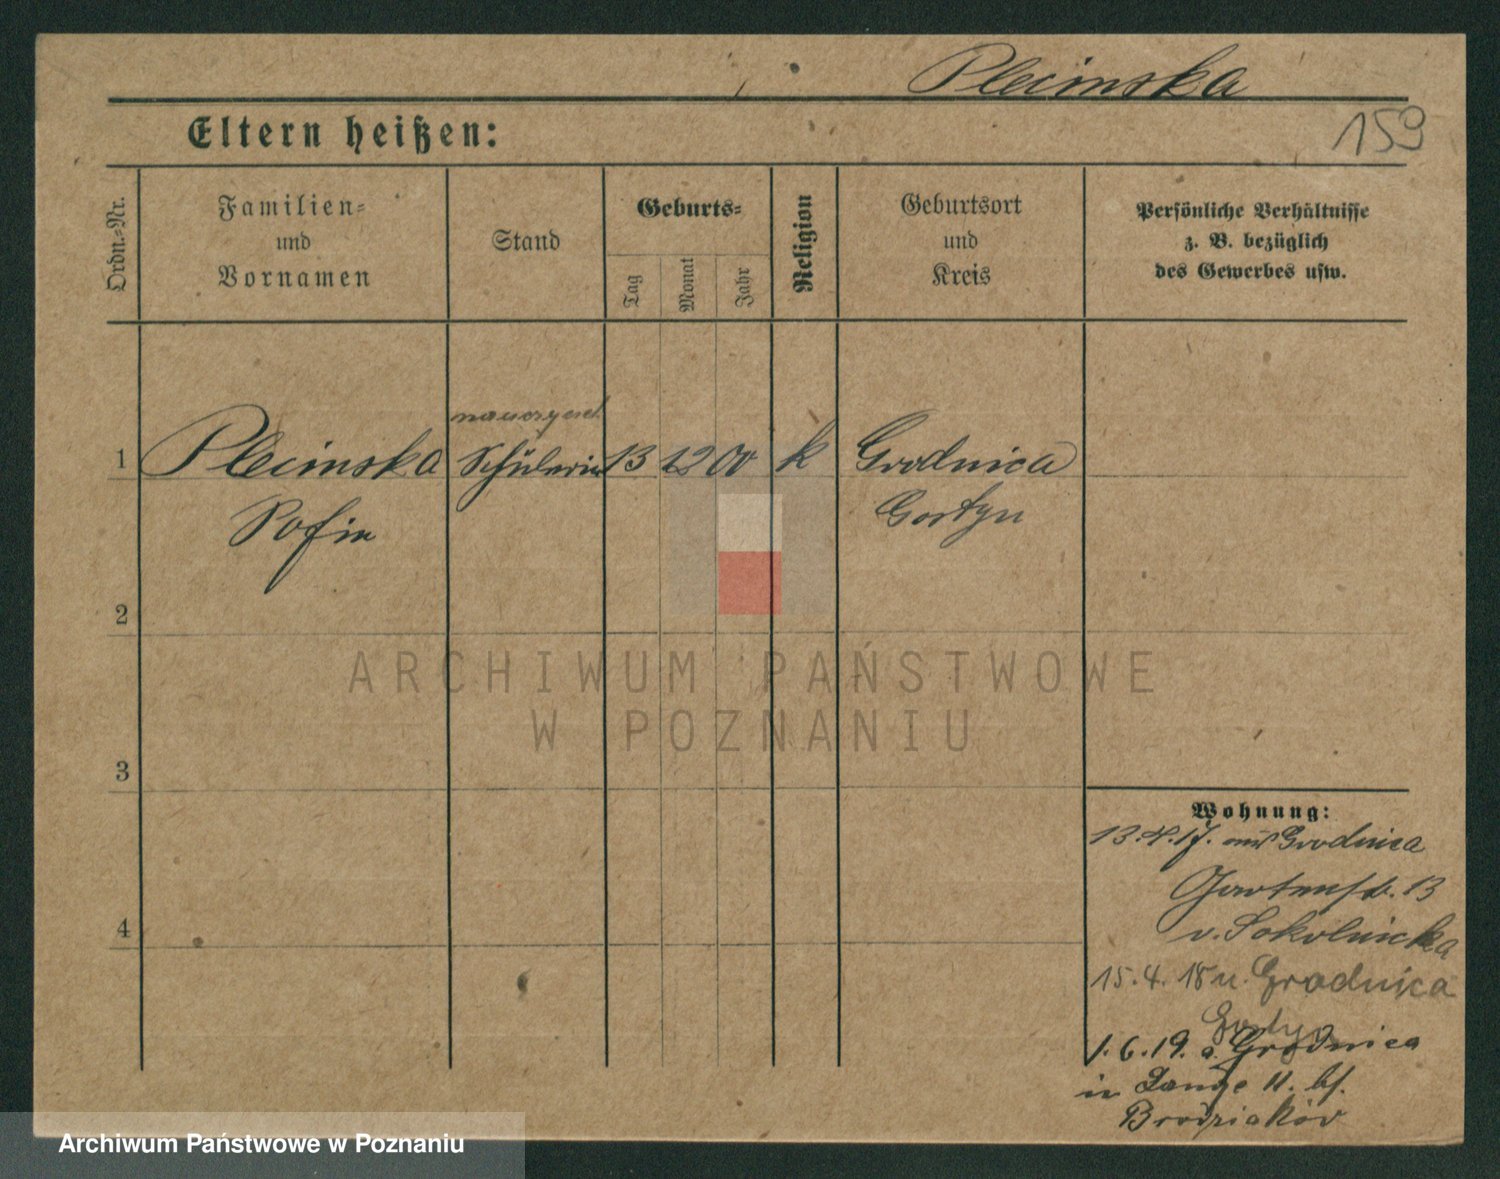 Plecinska
159
Eltern heißen:
Ordn.=Nr.
Familien=
und
Vornamen
Stand
Geburts=
Tag
Monat
Jahr
Religion
Geburtsort
und
Kreis
Persönliche Verhältnisse
z. B. bezüglich
des Gewerbes usw.
1
Plecinska
Sofie
Schülerin
13
12
00
k
Grodnica
Gostyn
2
3
4
Wohnung:
13.4.17. aus Grodnica
Gartenstr. 13
v. Sokolnicka
15.4.18 n. Grodnica
Gostyn
1.6.19. a. Grodnica
in Lange 11. bf.
Brodziaków
ARCHIWUM PAŃSTWOWE
W POZNANIU
Archiwum Państwowe w Poznaniu